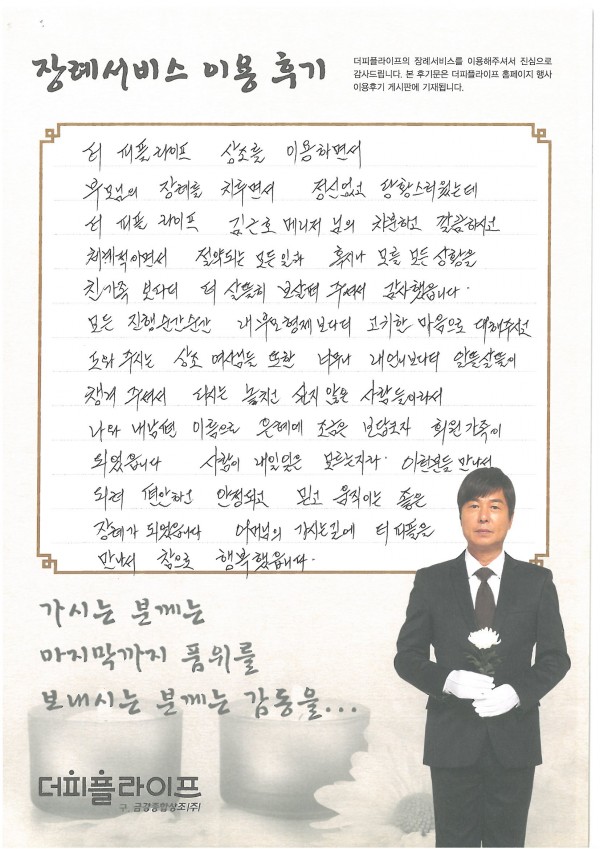 장례서비스 이용 후기
더피플라이프의 장례서비스를 이용해주셔서 진심으로
감사드립니다. 본 후기문은 더피플라이프 홈페이지 행사
이용후기 게시판에 기재됩니다.
더 피플라이프 상조를 이용하면서
부모님의 장례를 치루면서 정신없고 당황스러웠는데
더 피플 라이프 김근호 매니저 님의 차분하고 깔끔하시고
체계적이면서 절약되는 모든 일과 혹시나 모를 모든 상황을
친가족 보다더 더 살뜰히 보살펴 주셔서 감사했읍니다.
모든 진행순간순간 내 부모형제보다더 고귀한 마음으로 대해주시고
도와 주시는 상조 여사님들 또한 너무나 내 언니보다더 알뜰살뜰이
챙겨 주셔서 다시는 놓치고 싶지 않은 사람들이라서
나와 내남편 이름으로 은혜에 조금은 보답코자 회원가족이
되었읍니다 사람이 내일일은 모르는지라. 이런분들 만나서
되려 편안하고 안정되고 믿고 움직이는 좋은
장례가 되었읍니다 어머님의 가시는길에 더 피플을
만나서 참으로 행복했읍니다.
가시는 분께는
마지막까지 품위를
보내시는 분께는 감동을...
더피플라이프
구. 금강종합상조(주)